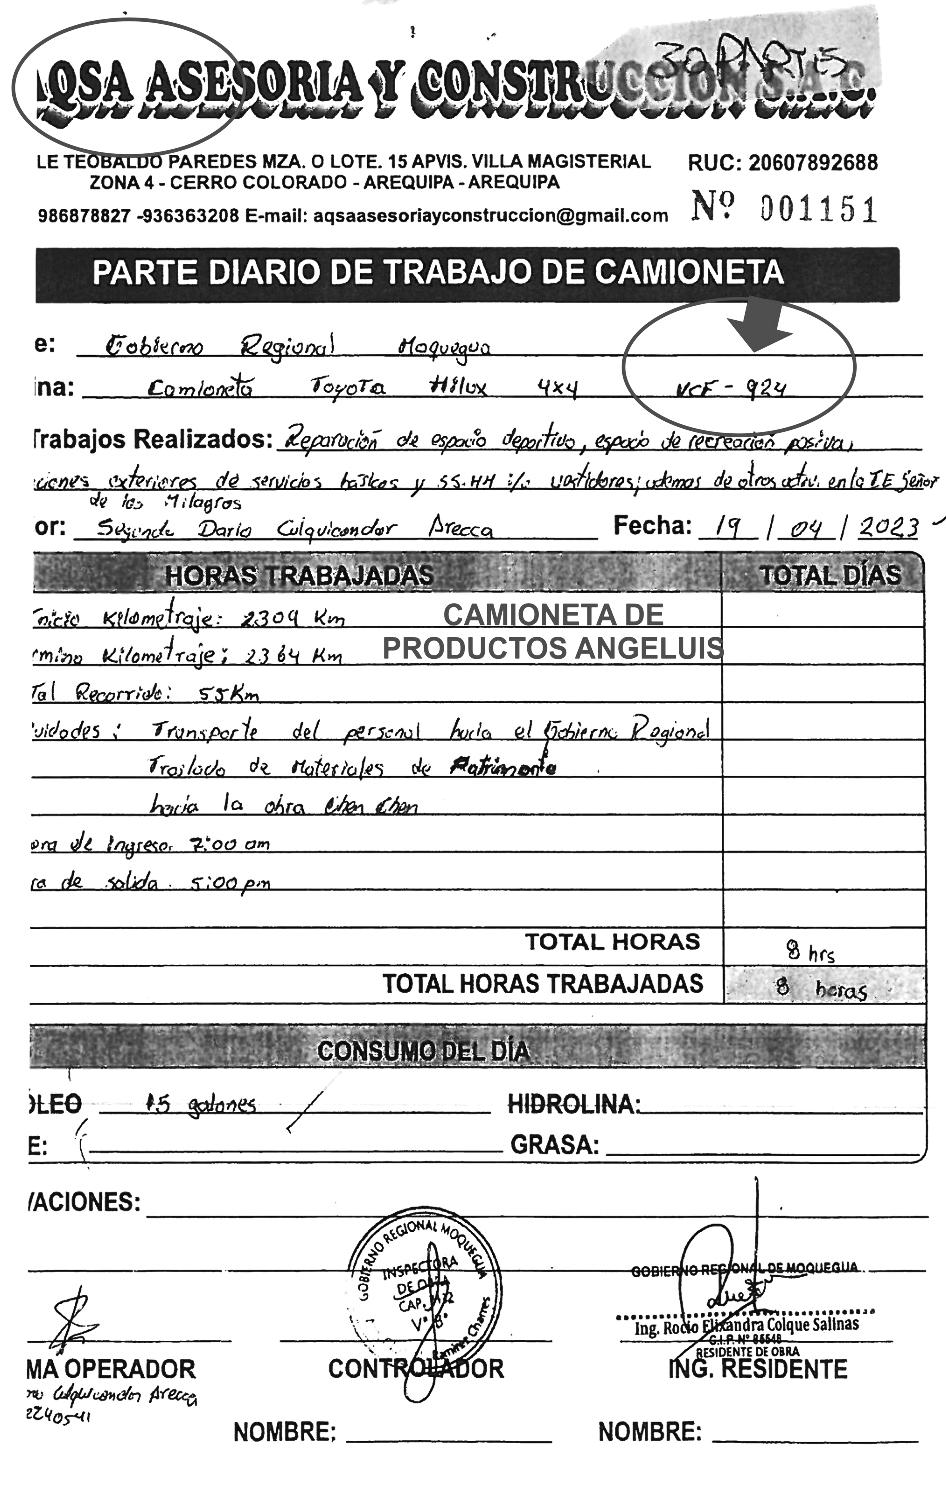 30 PARTES
AQSA ASESORIA Y CONSTRUCCION S.A.C.
LE TEOBALDO PAREDES MZA. O LOTE. 15 APVIS. VILLA MAGISTERIAL RUC: 20607892688
ZONA 4 - CERRO COLORADO - AREQUIPA - AREQUIPA
986878827 -936363208 E-mail: aqsaasesoriayconstruccion@gmail.com Nº 001151
PARTE DIARIO DE TRABAJO DE CAMIONETA
e: Gobierno Regional Moquegua
ina: Camioneta Toyota Hilux 4x4 VCF - 924
Trabajos Realizados: Reparación de espacio deportivo, espacio de recreación pasiva,
ciones exteriores de servicios basicos y SS.HH i/o vestidores; ademas de otros activ. en la I.E Señor
de los Milagros
or: Segundo Dario Culquicondor Arecca Fecha: 19 / 04 / 2023
HORAS TRABAJADAS TOTAL DÍAS
nicio Kilometraje: 2309 Km CAMIONETA DE
rmino Kilometraje: 2364 Km PRODUCTOS ANGELUIS
Tal Recorrido: 55Km
vidades: Transporte del personal hacia el Gobierno Regional
Traslado de Materiales de Patrimonio
hacia la obra Chen Chen
ora de Ingreso. 7:00 am
ra de salida. 5:00 pm
TOTAL HORAS 8 hrs
TOTAL HORAS TRABAJADAS 8 horas
CONSUMO DEL DÍA
OLEO 15 galones HIDROLINA:
E: GRASA:
VACIONES:
GOBIERNO REGIONAL MOQUEGUA
INSPECTORA
DE OBRA
V° B°
Ramirez Charres
GOBIERNO REGIONAL DE MOQUEGUA
Ing. Rocio Elixandra Colque Salinas
RESIDENTE DE OBRA
MA OPERADOR CONTROLADOR ING. RESIDENTE
Culquicondor Arecca
2240541
NOMBRE: NOMBRE: